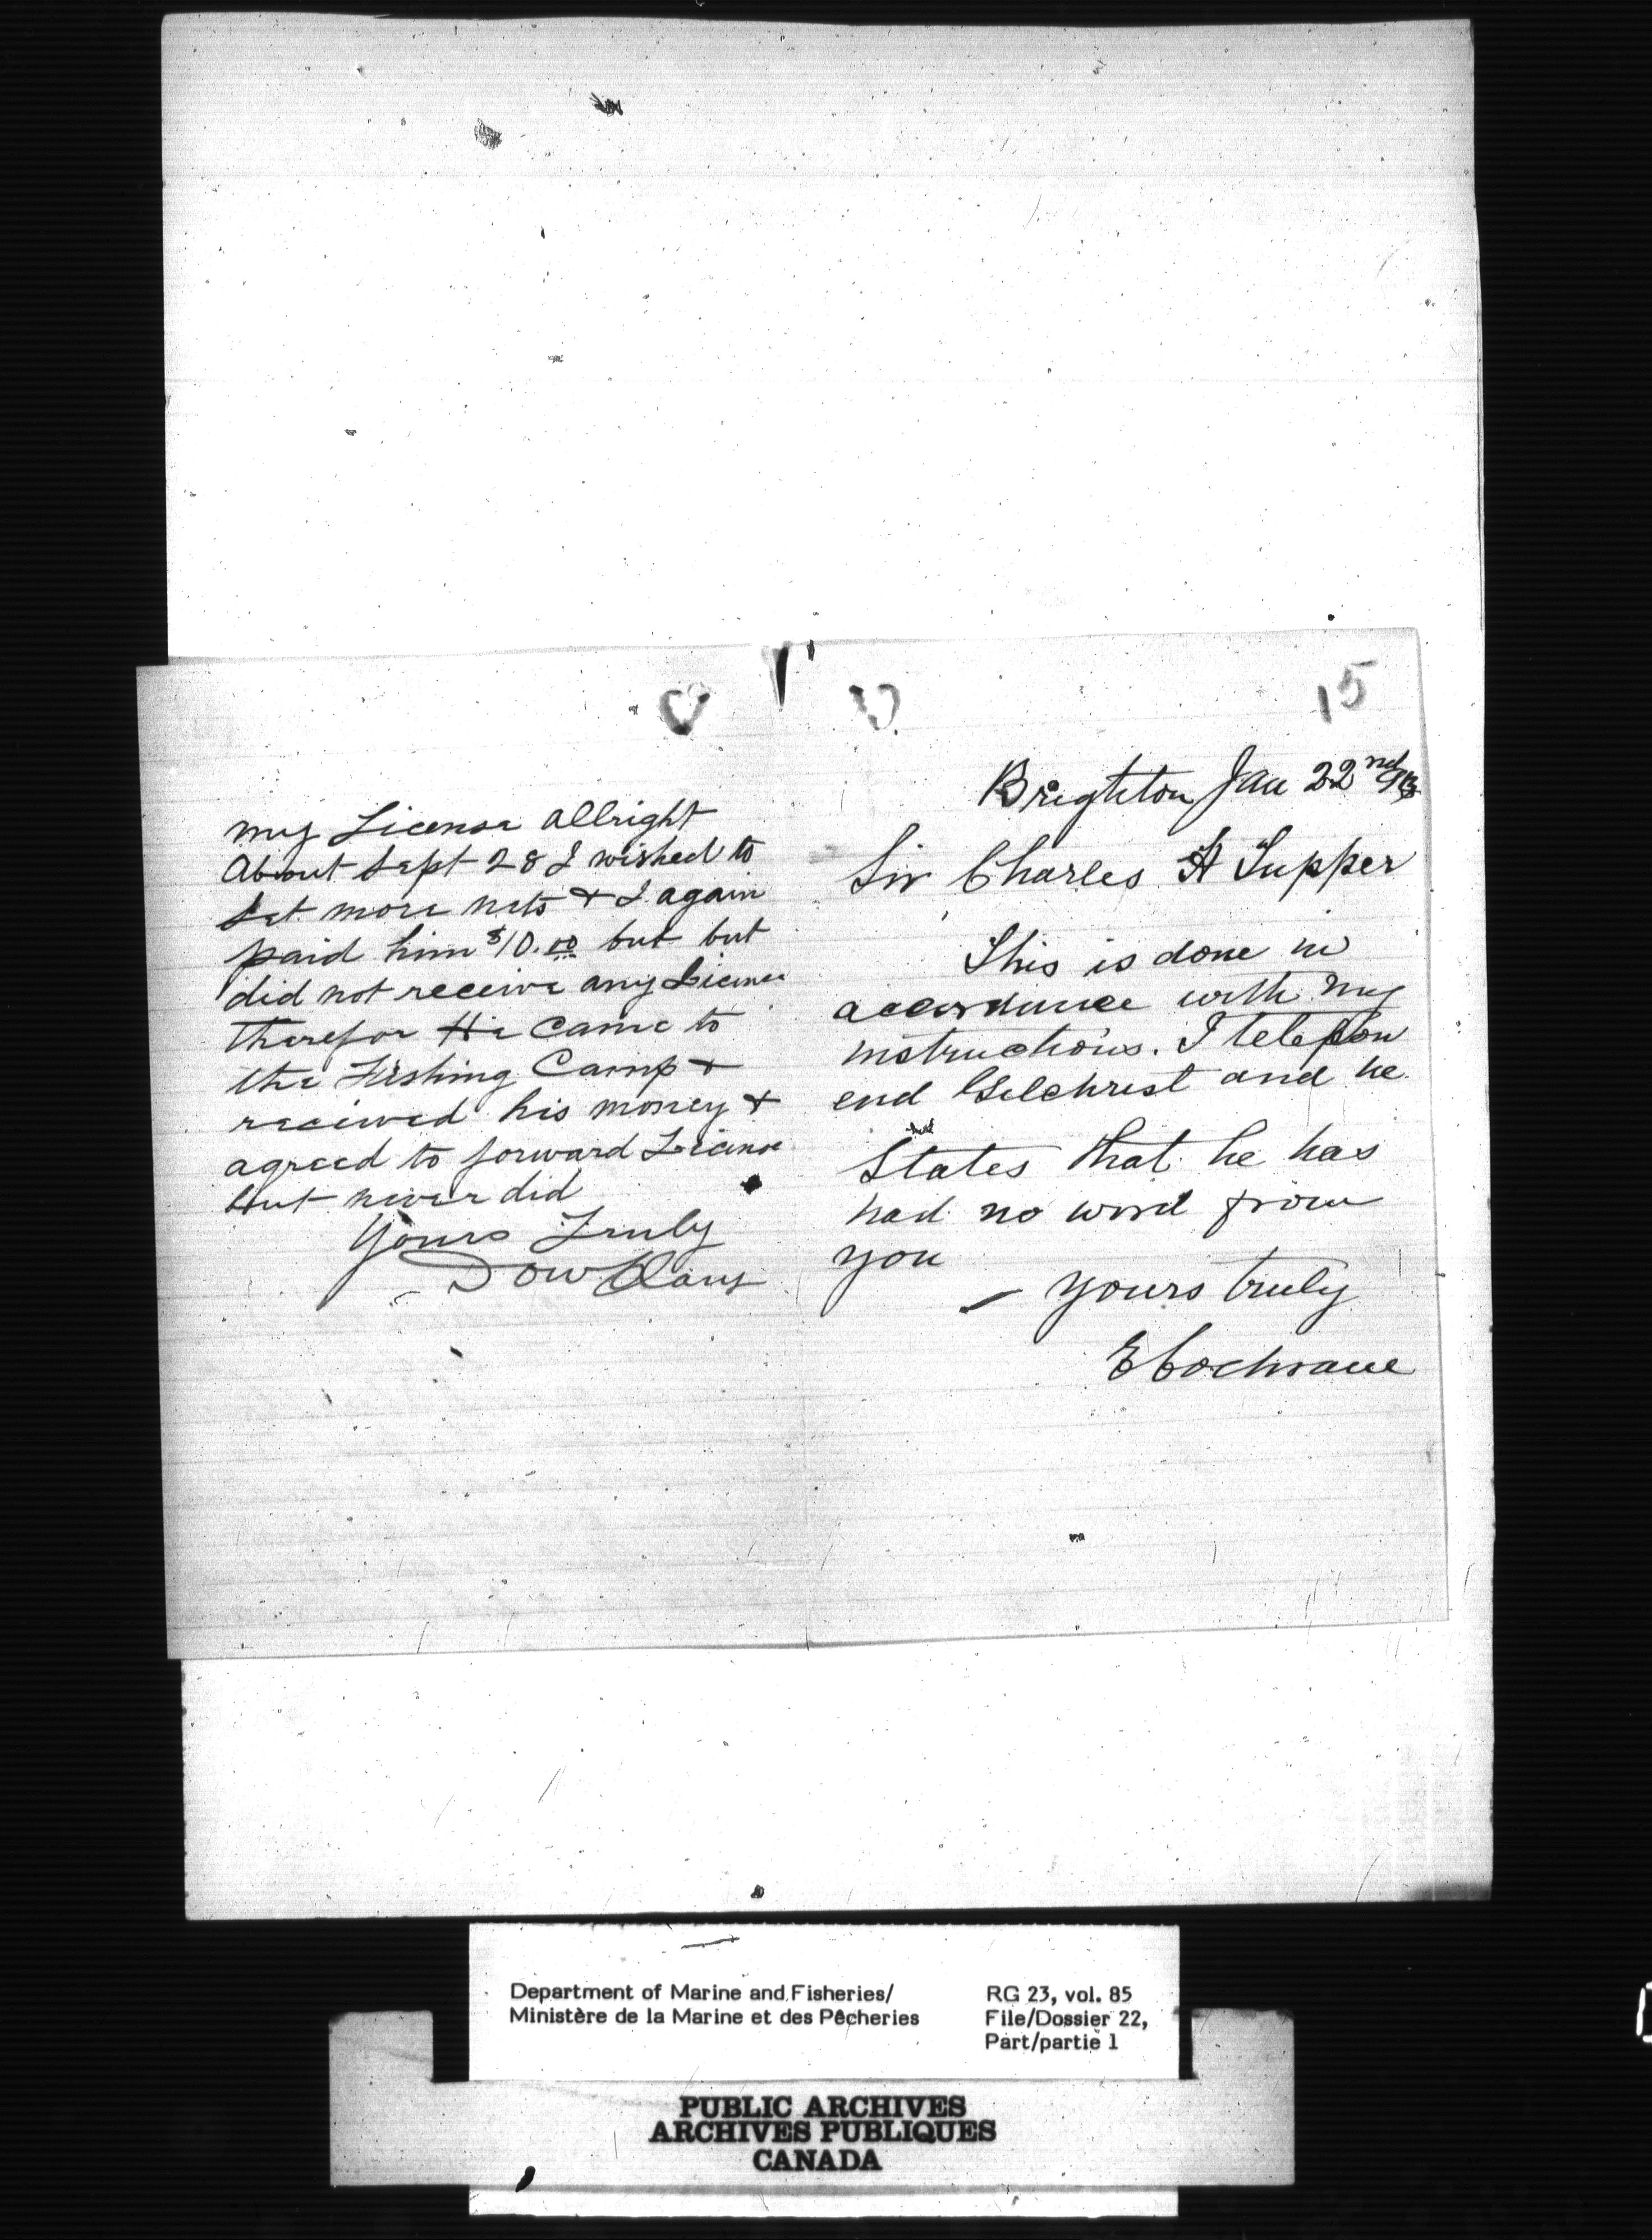 my License allright
About Sept 28 I wished to
set more nets & I again
paid him $10.00 but but
did not receive any License
therefor He came to
the Fishing Camp &
received his money &
agreed to forward License
but never did
Yours Truly
Dow
15
Brighton Jan 22nd
Sir Charles H Tupper
This is done in
accordance with my
instructions. I telepon
end Gilchrist and he
States that he has
had no word from
you
yours truly
E Cochrane
Department of Marine and Fisheries/
Ministère de la Marine et des Pêcheries
RG 23, vol. 85
File/Dossier 22,
Part/partie 1
PUBLIC ARCHIVES
ARCHIVES PUBLIQUES
CANADA